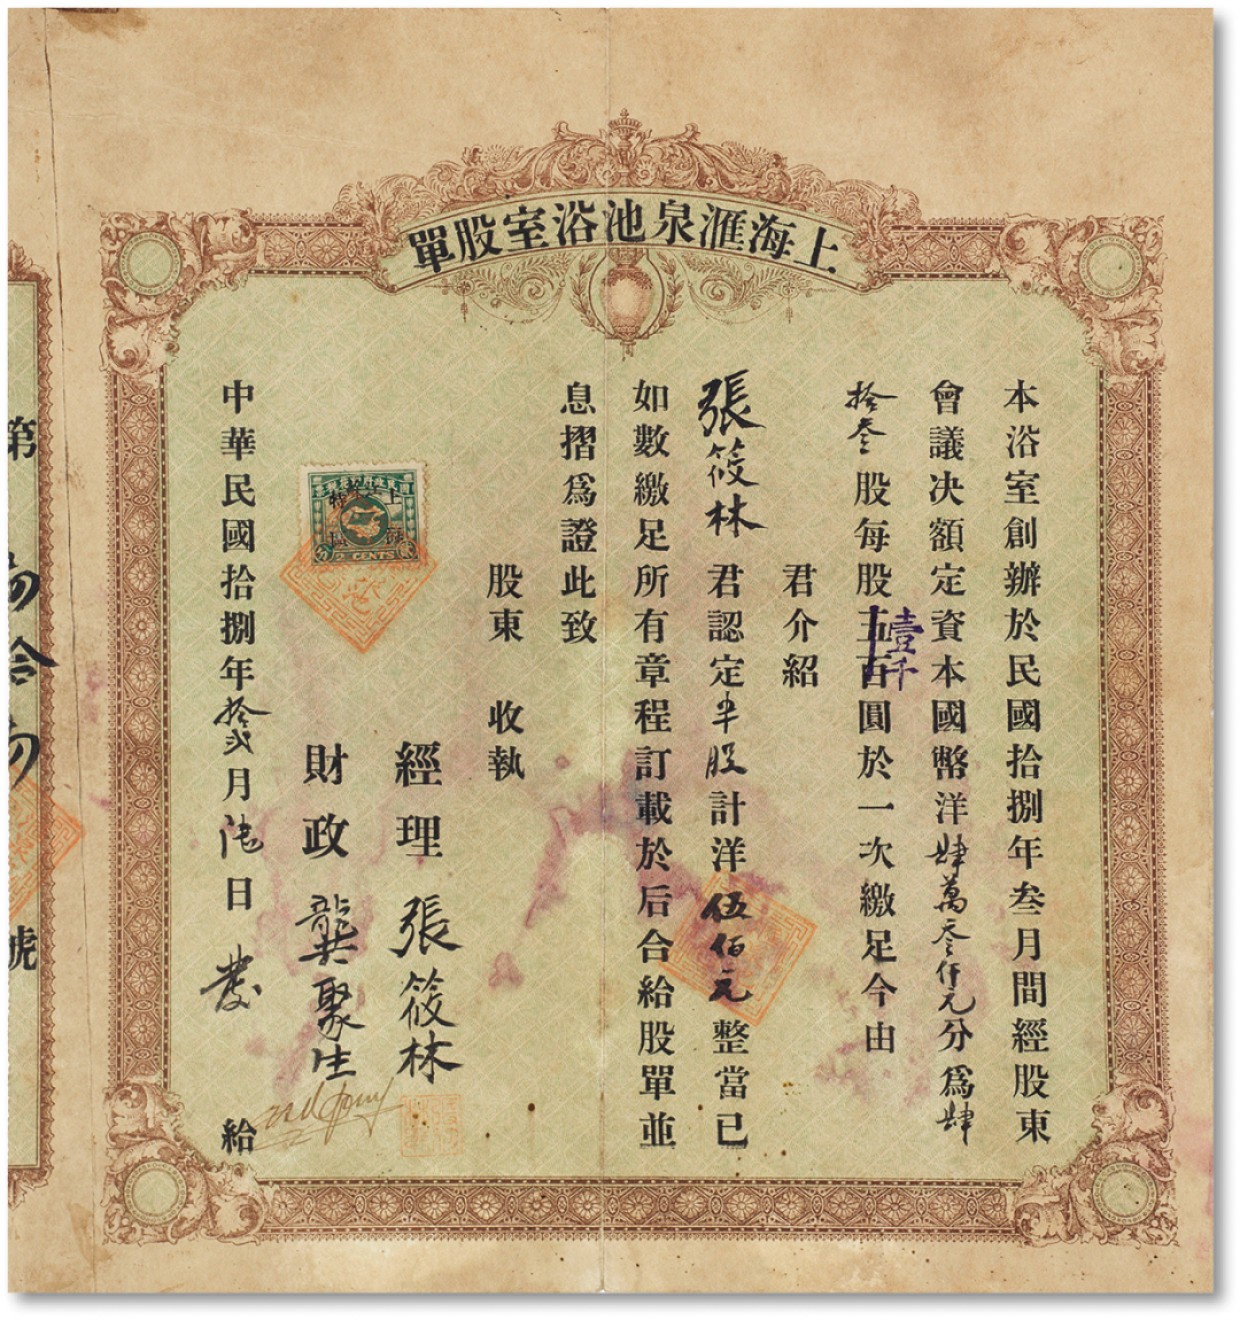 上海滙泉池浴室股單
本浴室創辦於民國拾捌年叁月間經股東
會議決額定資本國幣洋肆萬叁仟元分爲肆
拾叁股每股五百圓於一次繳足今由
壹千
君介紹
張筱林君認定半股計洋伍佰元整當已
如數繳足所有章程訂載於后合給股單並
息摺爲證此致
股東 收執
經理 張筱林
財政 龔聚生
中華民國拾捌年拾弍月陸日發給
2 CENTS
第
號